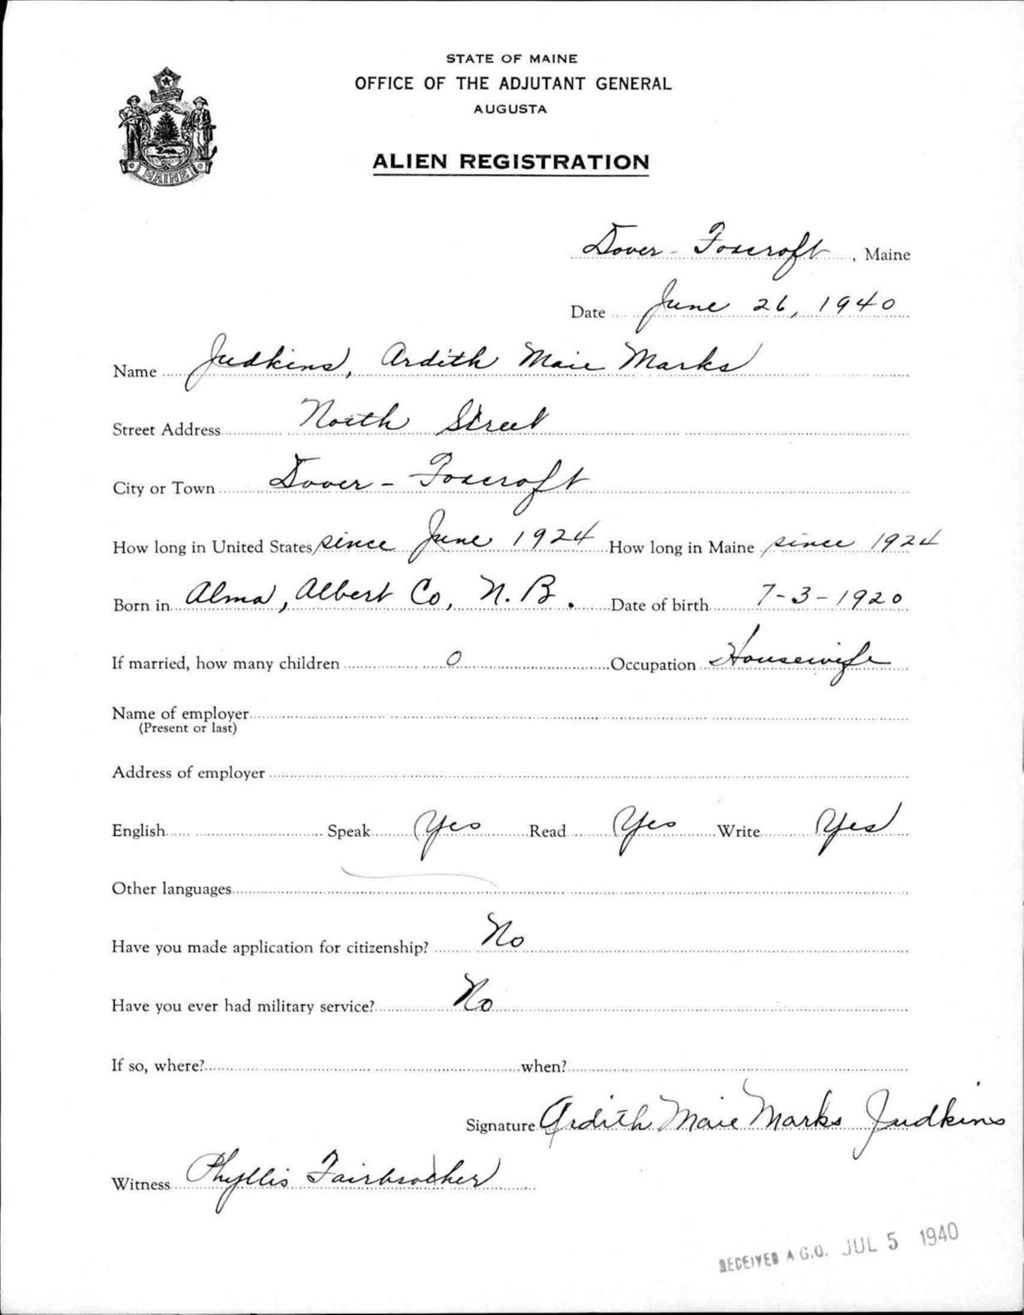 STATE OF MAINE
OFFICE OF THE ADJUTANT GENERAL
AUGUSTA
ALIEN REGISTRATION
MAINE
Dover-Foxcroft, Maine
Date June 26, 1940
Name Judkins, Ardith Maie Marks
Street Address North Street
City or Town Dover-Foxcroft
How long in United States since June 1924 How long in Maine since 1924
Born in Alma, Albert Co, N.B. Date of birth 7-3-1920
If married, how many children 0 Occupation Housewife
Name of employer
(Present or last)
Address of employer
English Speak Yes Read Yes Write Yes
Other languages
Have you made application for citizenship? No
Have you ever had military service? No
If so, where? when?
Signature Ardith Maie Marks Judkins
Witness Phyllis
RECEIVED A.G.O. JUL 5 1940